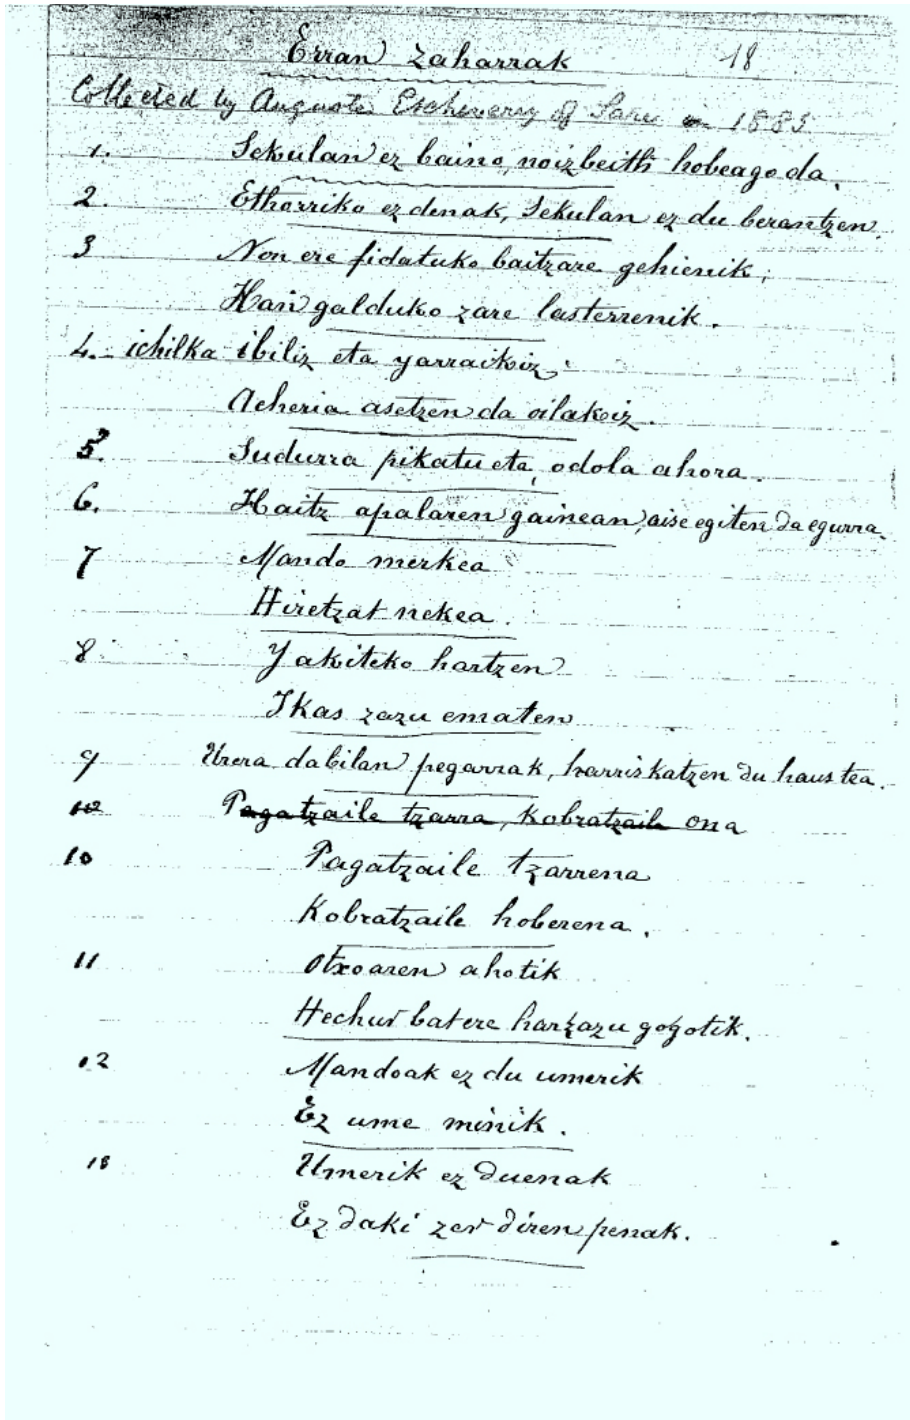 Erran zaharrak 18
Collected by Auguste Etcheverry of Sare in 1885
1. Sekulan ez baino, noizbeith hobeago da.
2. Ethorriko ez denak, Sekulan ez du berantzen.
3 Non ere fidatuko baitzare gehienik;
Han galduko zare lasterrenik.
4. ichilka ibiliz eta yarraikiz;
Acheria asetzen da oilakiz.
5. Sudurra pikatu eta, odola ahora.
6. Haitz apalaren gainean, aise egiten da egurra.
7 Mando merkea
Hiretzat nekea.
8 Yakiteko hartzen
Ikas zazu ematen
9 Urera dabilan pegarrak, harriskatzen du haustea.
10 Pagatzaile tzarra, Kobratzaile ona
10 Pagatzaile tzarrena
Kobratzaile hoberena.
11 Otxoaren ahotik
Hechur batere harzazu gogotik.
12 Mandoak ez du umerik
Ez ume minik.
13 Umerik ez duenak
Ez daki zer diren penak.